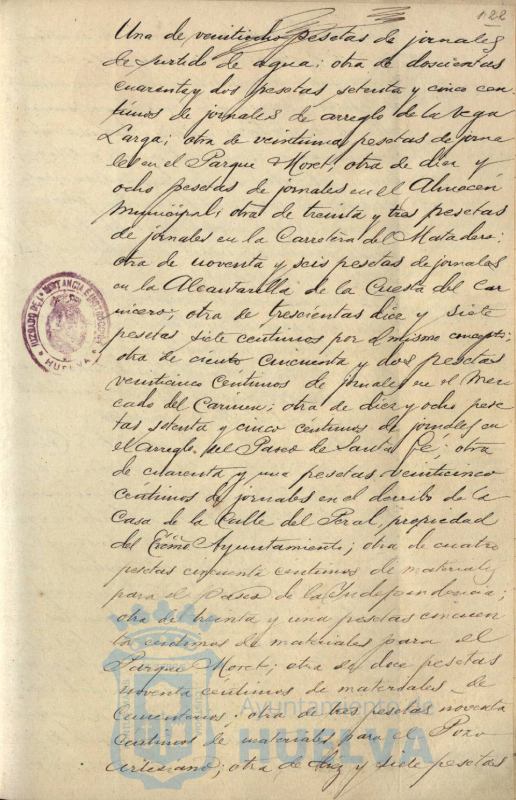 122
Una de veintiocho pesetas de jornales
de surtido de agua; otra de doscientas
cuarenta y dos pesetas setenta y cinco cen
timos de jornales de arreglo de la vega
Larga; otra de veintiuna pesetas de jorna
les en el Parque Moret; otra de diez y
ocho pesetas de jornales en el Almacén
Municipal; otra de treinta y tres pesetas
de jornales en la Carretera del Matadero;
otra de noventa y seis pesetas de jornales
en la Alcantarilla de la Cuesta del Car
nicero; otra de trescientas diez y siete
pesetas siete centimos por el mismo concepto;
otra de ciento cincuenta y dos pesetas
veinticinco céntimos de jornales en el Mer
cado del Carmen; otra de diez y ocho pese
tas setenta y cinco céntimos de jornales en
el arreglo del Paseo de Santa Fé; otra
de cuarenta y una pesetas veinticinco
céntimos de jornales en el derribo de la
Casa de la Calle del Peral, propiedad
del Excmo Ayuntamiento; otra de cuatro
pesetas cincuenta centimos de materiales
para el Paseo de la Independencia;
otra de treinta y una pesetas cincuen
ta centimos de materiales para el
Parque Moret; otra de doce pesetas
noventa céntimos de materiales de
Cementerios; otra de tres pesetas noventa
centimos de materiales para el Pozo
artesiano; otra de diez y siete pesetas
JUZGADO DE 1ª INSTANCIA E INSTRUCCION
HUELVA
Ayuntamiento de
HUELVA